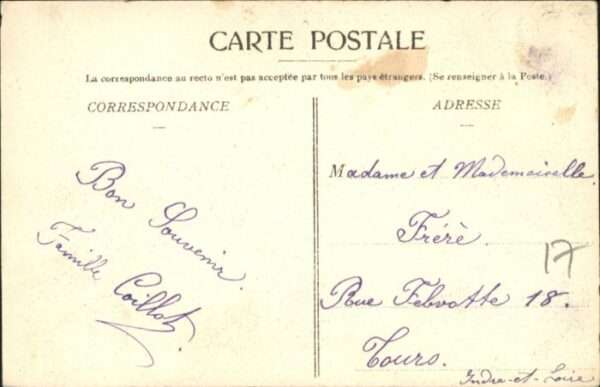 CARTE POSTALE
La correspondance au recto n'est pas acceptée par tous les pays étrangers. (Se renseigner à la Poste.)
CORRESPONDANCE
ADRESSE
Bon Souvenir.
Famille Coillot.
Madame et Mademoiselle
Fréré.
17
Rue Febvotte 18.
Tours.
Indre-et-Loire